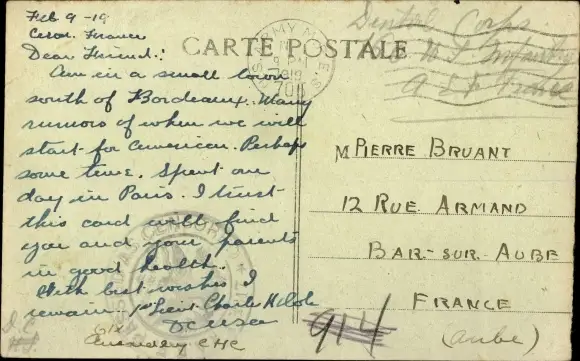 Feb 9 - 19
Ceron. France
Dear Friend:
Am in a small town
south of Bordeaux. Many
rumors of when we will
start for American. Perhaps
some time. Spent one
day in Paris. I trust
this card will find
you and your parents
in good health.
With best wishes I
remain. 1st Lieut Charles
DC USA
CARTE POSTALE
U.S. ARMY M.P.E.S.
9 PM
1919
701
Dental Corps
Infantry
A E F France
M PIERRE BRUANT
12 RUE ARMAND
BAR-SUR-AUBE
FRANCE
(Aube)
914
CENSOR